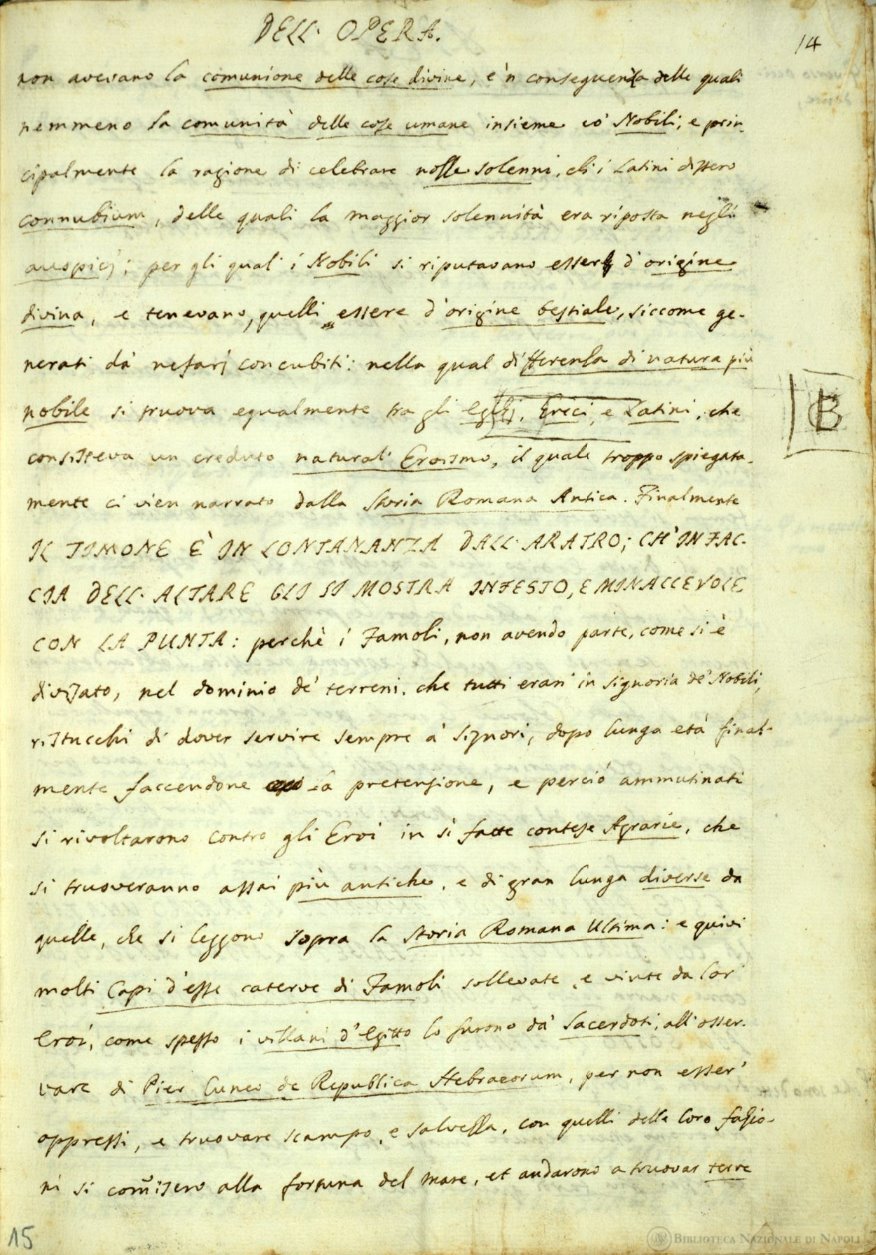 DELL' OPERA.
14
non avevano la comunione delle cose divine, e 'n conseguenza delle quali
nemmeno la comunità delle cose umane insieme co' Nobili, e prin-
cipalmente la ragione di celebrare nozze solenni, ch' i Latini dissero
connubium, delle quali la maggior solennità era riposta negli
auspicj; per gli qual' i Nobili si riputavano esser d' origine
divina, e tenevano, quelli essere d' origine bestiale, siccome ge-
nerati da' nefarj concubiti: nella qual differenza di natura più
nobile si truova egualmente tra gli Egizj, Greci, e Latini, che
B
consisteva un creduto natural' Eroismo, il quale troppo spiegata-
mente ci vien narrato dalla Storia Romana Antica. Finalmente
IL TIMONE E' IN LONTANANZA DALL' ARATRO; CH' IN FAC-
CIA DELL' ALTARE GLI SI MOSTRA INFESTO, E MINACCEVOLE
CON LA PUNTA: perchè i Famoli, non avendo parte, come si è
divisato, nel dominio de' terreni, che tutti eran' in signoria de' Nobili,
ristucchi di dover servire sempre a' Signori, dopo lunga età final-
mente faccendone la pretensione, e perciò ammutinati
si rivoltarono contro gli Eroi in sì fatte contese Agrarie, che
si truoveranno assai più antiche, e di gran lunga diverse da
quelle, che si leggono sopra la Storia Romana Ultima: e quivi
molti Capi d' esse caterve di Famoli sollevate, e vinte da lor'
Eroi, come spesso i villani d' Egitto lo furono da' Sacerdoti, all' osser-
vare di Pier Cuneo de Republica Hebraeorum, per non esser'
oppressi, e truovare scampo, e salvezza, con quelli delle loro fazio-
ni si com̃isero alla fortuna del mare, et andarono a truovar terre
15
BIBLIOTECA NAZIONALE DI NAPOLI